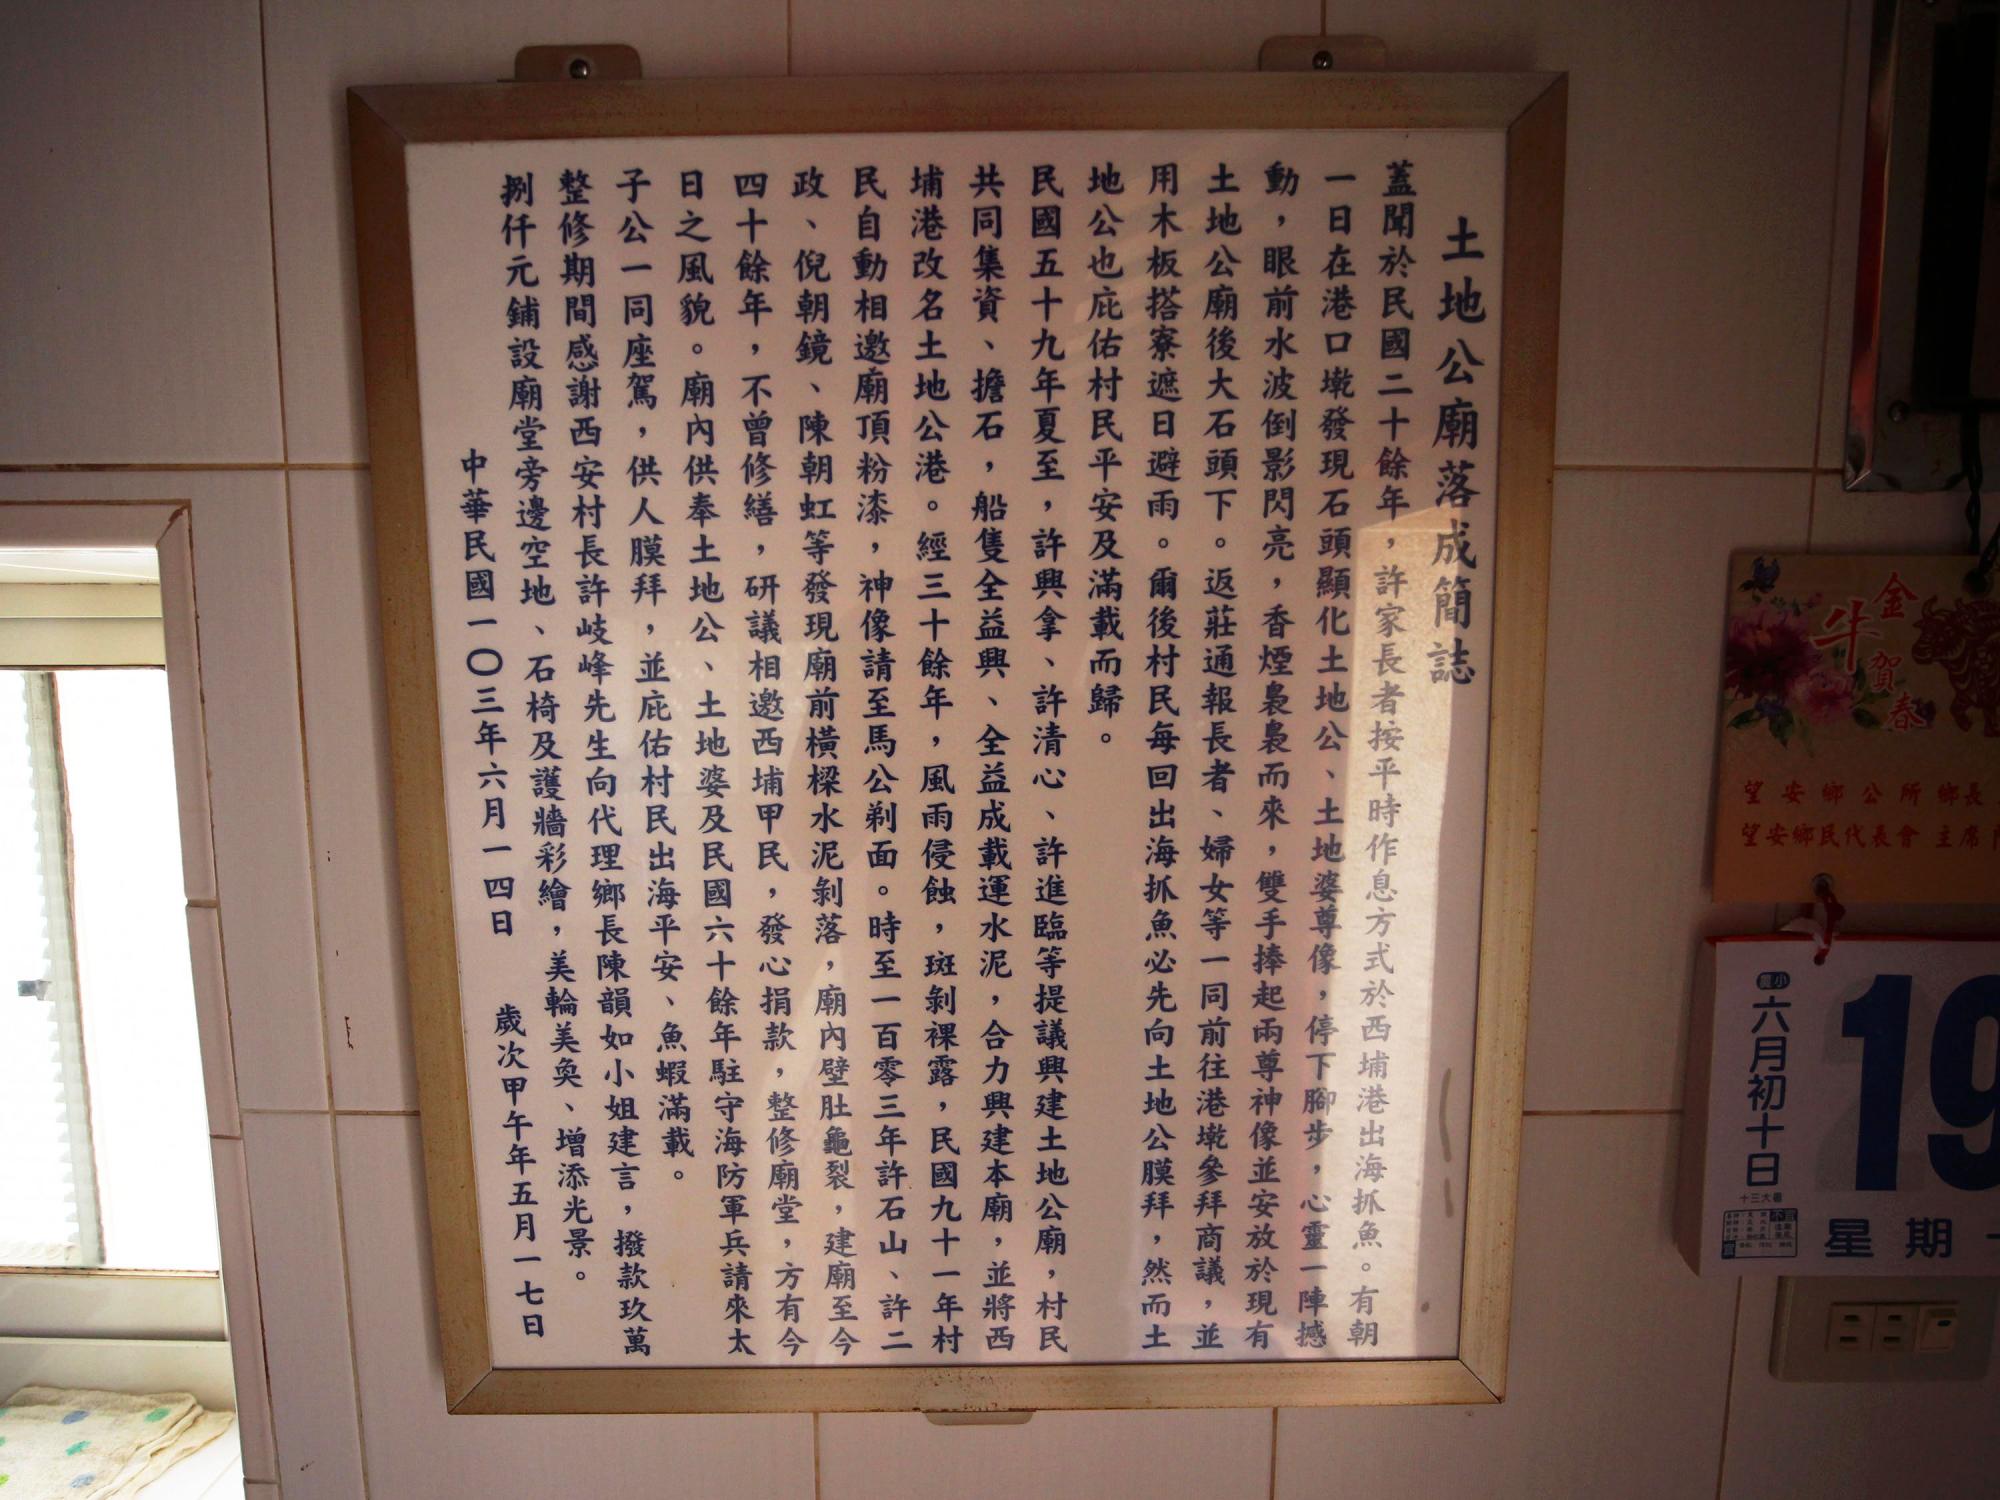 土地公廟落成簡誌
蓋聞於民國二十餘年，許家長者按平時作息方式於西埔港出海抓魚。有朝
一日在港口墘發現石頭顯化土地公、土地婆尊像，停下腳步，心靈一陣撼
動，眼前水波倒影閃亮，香煙裊裊而來，雙手捧起兩尊神像並安放於現有
土地公廟後大石頭下。返莊通報長者、婦女等一同前往港墘參拜商議，並
用木板搭寮遮日避雨。爾後村民每回出海抓魚必先向土地公膜拜，然而土
地公也庇佑村民平安及滿載而歸。
民國五十九年夏至，許興拿、許清心、許進臨等提議興建土地公廟，村民
共同集資、擔石，船隻全益興、全益成載運水泥，合力興建本廟，並將西
埔港改名土地公港。經三十餘年，風雨侵蝕，斑剝裸露，民國九十一年村
民自動相邀廟頂粉漆，神像請至馬公剃面。時至一百零三年許石山、許二
政、倪朝鏡、陳朝虹等發現廟前橫樑水泥剝落，廟內壁肚龜裂，建廟至今
四十餘年，不曾修繕，研議相邀西埔甲民，發心捐款，整修廟堂，方有今
日之風貌。廟內供奉土地公、土地婆及民國六十餘年駐守海防軍兵請來太
子公一同座駕，供人膜拜，並庇佑村民出海平安、魚蝦滿載。
整修期間感謝西安村長許岐峰先生向代理鄉長陳韻如小姐建言，撥款玖萬
捌仟元鋪設廟堂旁邊空地、石椅及護牆彩繪，美輪美奐、增添光景。
中華民國一〇三年六月一四日　歲次甲午年五月一七日
金牛賀春
望安鄉公所 鄉長
望安鄉民代表會 主席
小
農
六月初十日
十三大暑
19
星期一